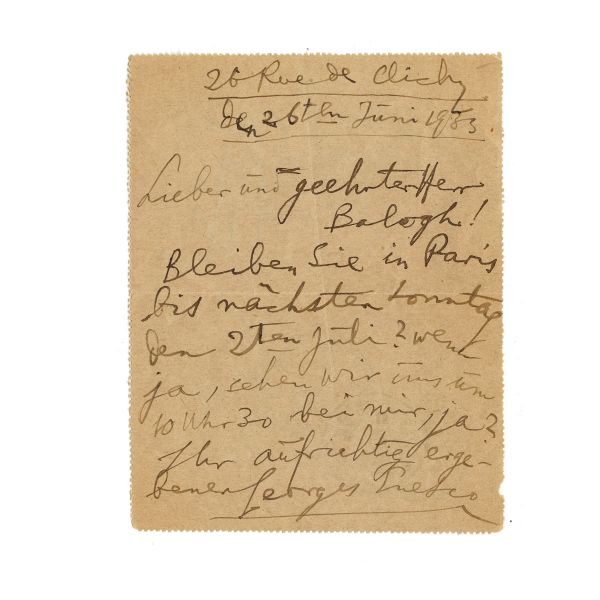 26 Rue de Clichy
den 26ten Juni 1933.
Lieber und geehrter Herr
Balogh!
Bleiben Sie in Paris
bis nächsten Sonntag
den 2ten Juli? wenn
ja, sehen wir uns um
10 Uhr 30 bei mir, ja?
Ihr aufrichtig erge-
bener Georges Enesco